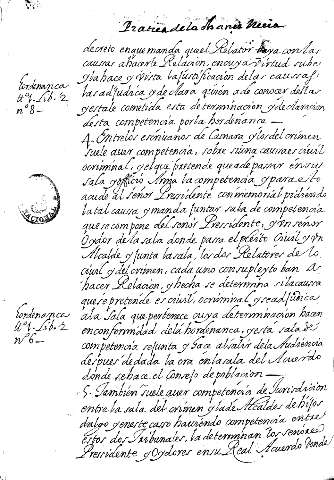 Pratica de la Chancilleria
decreto en que manda que el Relator vaya con las
causas a hacerle Relacion, en cuya virtud sube
y la hace y vista la justificacion de las causas
las adjudica y declara quien a de conocer dellas
y esta le cometida esta determinacion y declaracion
desta competencia por la hordenanza
hordenança
lib. 2
nº 8
4. Entre los escrivanos de Camara y los del crimen
suele aver competencia, sobre si una causa es civil
o criminal, y el que pretende que a de pasar en su
sala y officio forma la competencia y para esto
acude al señor Presidente con memorial pidiendo
la tal causa y manda juntar sala de competencia
que se compone del señor Presidente, y un señor
Oydor de la sala donde pasa el pleito Civil y un
Alcalde y junta la sala, los dos Relatores de lo
civil y del crimen, cada uno con su pleyto ban a
hacer Relacion, y hecha se determina si la causa
que se pretende es civil, o criminal y se adjudica
a la sala que pertenece cuya determinacion hacen
en conformidad de la hordenanza, y esta sala de
competencia se junta y hace al salir de la Audiencia
despues de dada la ora en la sala del Acuerdo
donde se hace el Consejo de poblacion
hordenança
lib. 2
nº 6
5. Tambien suele aver competencia de Jurisdicion
entre la sala del crimen y la de Alcaldes de hijos
dalgo y en este caso haciendo competencia entre
estos dos Tribunales, la determinan los señores
Presidente y Oydores en su Real Acuerdo donde